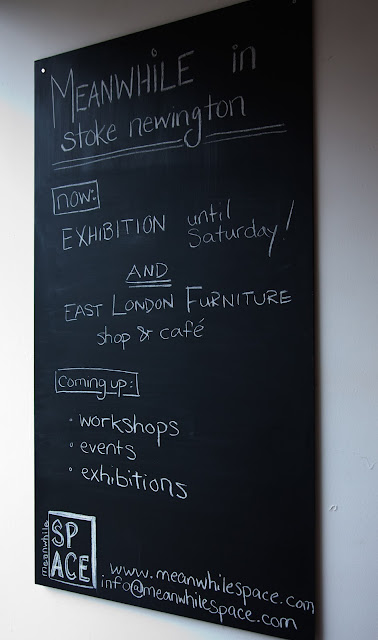 MEANWHILE in
stoke newington
now:
EXHIBITION until
Saturday!
AND
EAST LONDON FURNITURE
shop & café
Coming up:
• workshops
• events
• exhibitions
meanwhile
SP
ACE
www.meanwhilespace.com
info@meanwhilespace.com